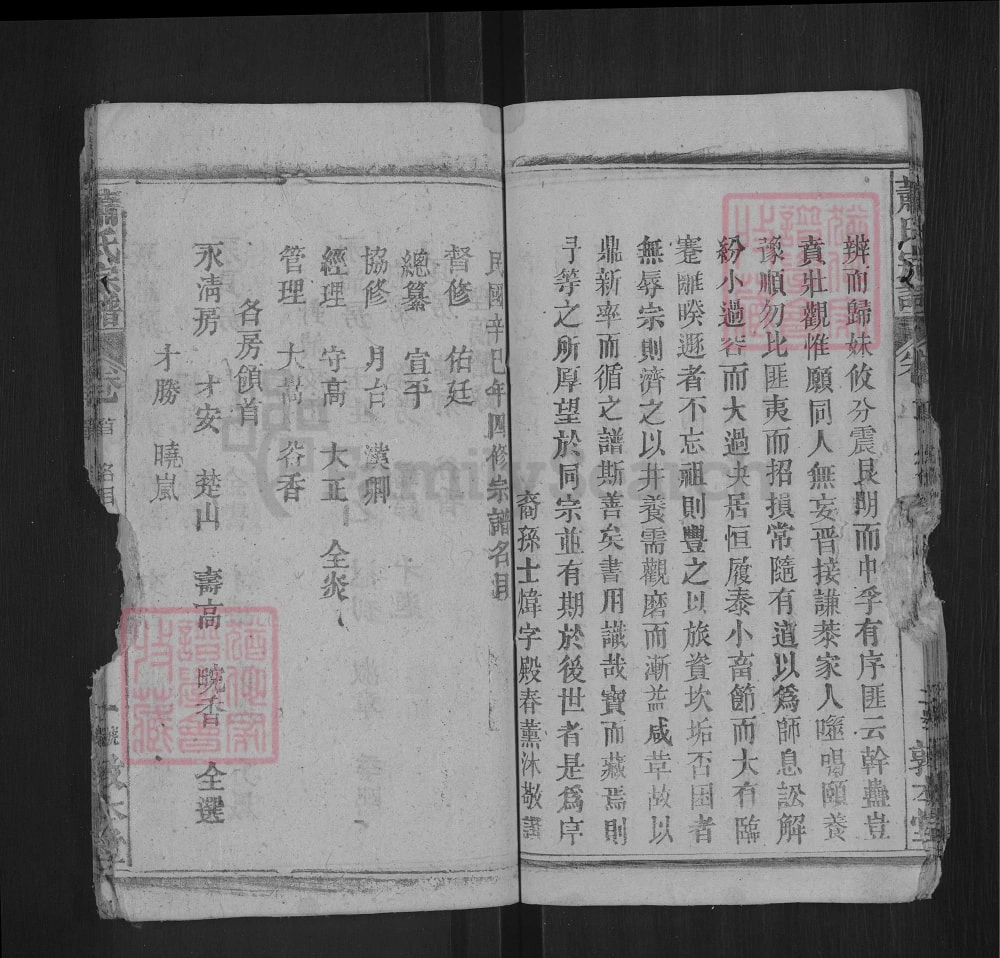 蕭氏宗譜
辨而歸妹攸分震艮期而中孚有序匪云幹蠱豈
賁壯觀惟願同人無妄晉接謙恭家人噬嗑頤養
豫順勿比匪夷而招損常隨有道以為師息訟解
紛小過容而大過央居恒履泰小畜節而大有臨
蹇離暌遯者不忘祖則豐之以旅資坎垢否困者
無辱宗則濟之以井養需觀磨而漸益咸革故以
鼎新率而循之譜斯善矣書用識哉寶而藏焉則
予等之所厚望於同宗並有期於後世者是為序
裔孫士煒字殿春薰沐敬譔
敦本堂
民國辛巳年四修宗譜名目
督修 佑廷
總纂 宜平
協修 月台 漢卿
經理 守高 大正 全炎
管理 大暠 谷香
各房領首
永淸房 才安 楚山 壽高 晚香 全選
才勝 曉嵐
蕭氏宗譜 卷首 名目 一 敦本堂